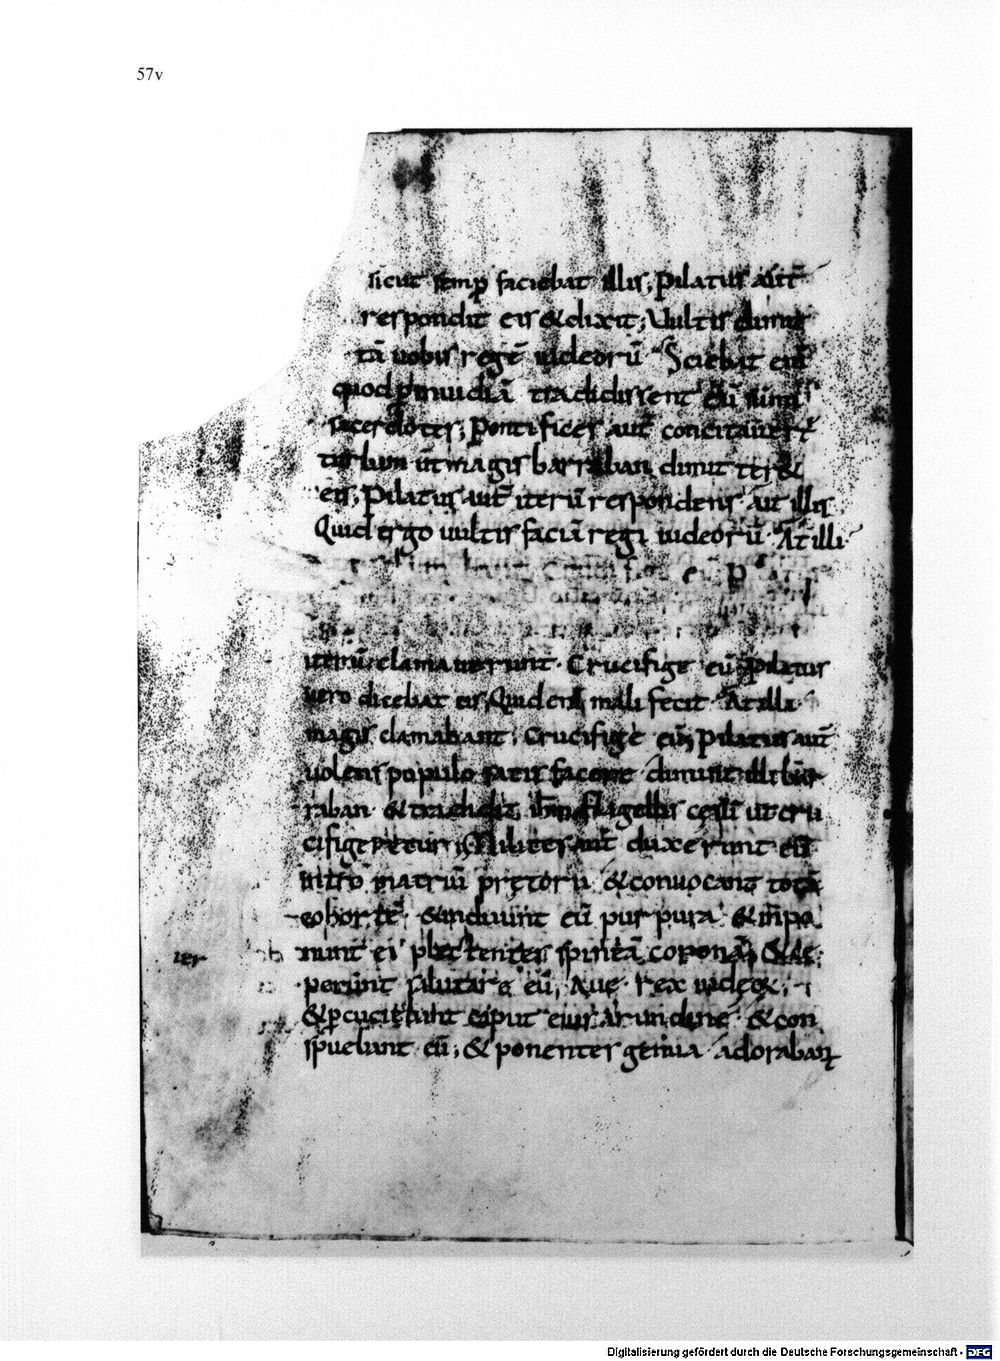 57v
sicut semp faciebat illis; Pilatus aut̄
respondit eis & dixit; Uultis dimit
tā uobis regē iudeorū Sciebat enī
quod p inuidiā tradidissent eū sūmi
sacerdotes; Pontifices aut̄ concitauer̄
turbam ut magis barraban dimitteret
eis; Pilatus aut̄ iterū respondens ait illis
Quid ergo uultis faciā regi iudeorū At illi
iterū clamauerunt Crucifige eū Pilatus
uero dicebat eis Quid enī mali fecit At illi
magis clamabant; Crucifige eū; Pilatus aut̄
uolens populo satis facere dimisit illi bar
raban & tradidit ihm flagellis cęsū ut cru
cifigeretur; Milites aut̄ duxerunt eū
intro in atriū prętorii & conuocant totā
cohortē & induunt eū purpura & inpo
nunt ei plectentes spineā coronā; & cę
perunt salutare eū; Aue rex iudeoꝝ;
& pcuciebant caput eius arundine & con
spuebant eū; & ponentes genua adorabant
Digitalisierung gefördert durch die Deutsche Forschungsgemeinschaft - DFG